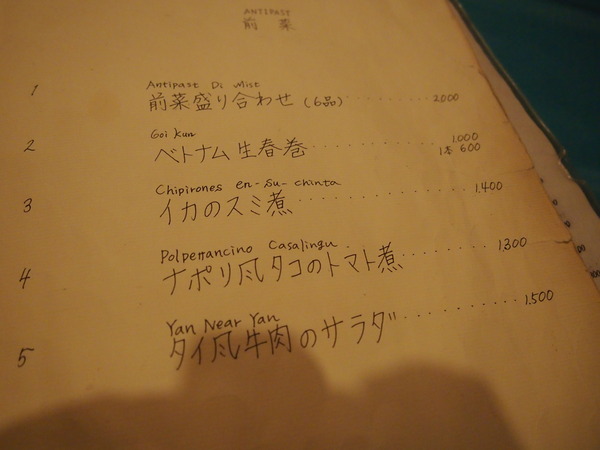 ANTIPAST
前菜
1 Antipast Di Mist
前菜盛り合わせ（6品）・・・・・・・・・・ 2000
2 Goi Kun
ベトナム生春巻・・・・・・・・・・・・・・ 1.000
1本 600
3 Chipirones en-su-chinta
イカのスミ煮・・・・・・・・・・・・・・・・ 1.400
4 Polperrancino Casalingu
ナポリ風タコのトマト煮・・・・・・・・ 1,300
5 Yan Near Yan
タイ風牛肉のサラダ・・・・・・・・・・ 1.500